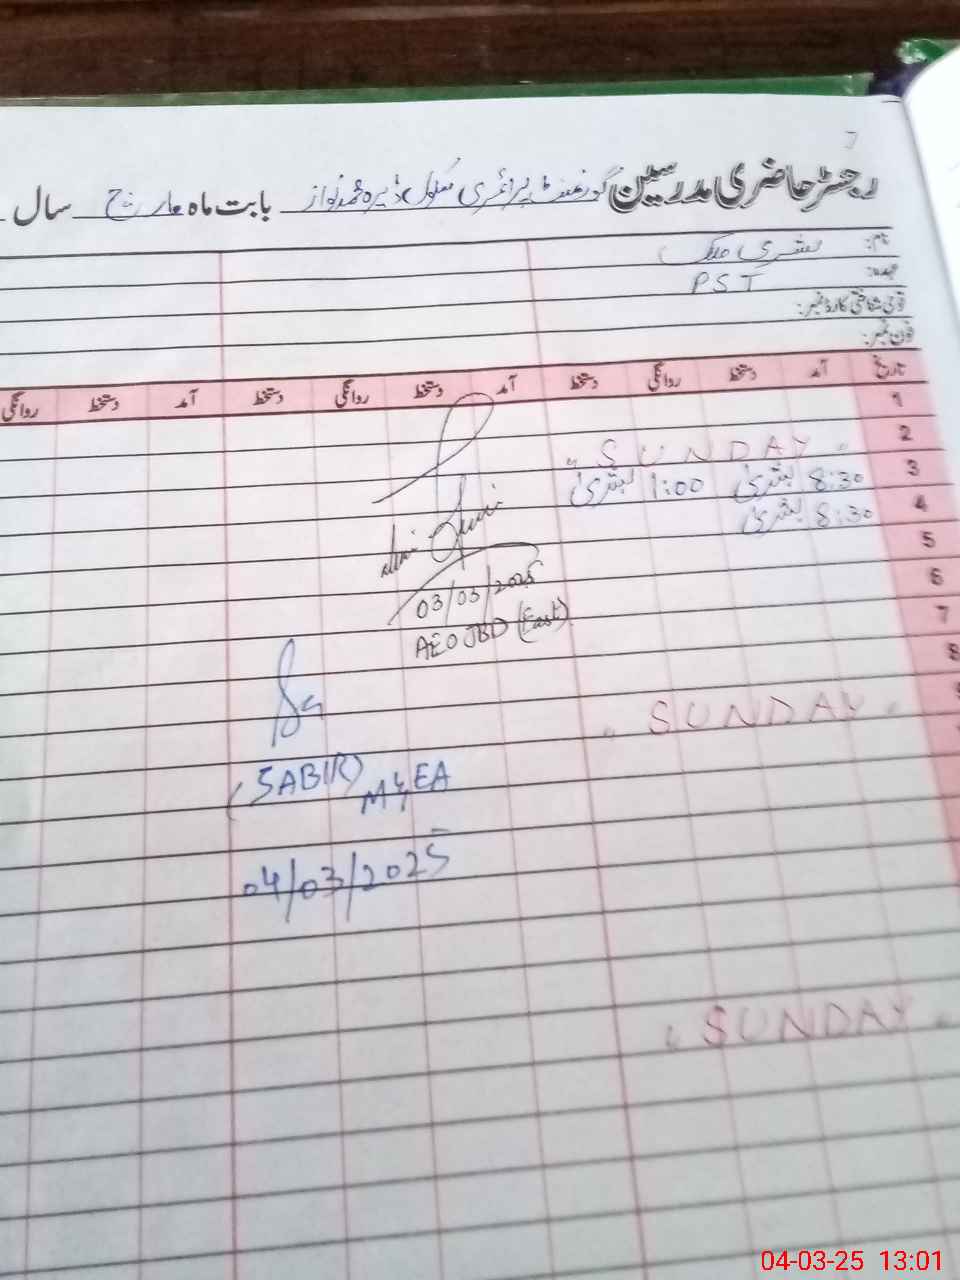 رجسٹر حاضری مدرسین گورنمنٹ پرائمری سکول ڈیرہ محمد نواز بابت ماہ مارچ سال
نام: بشریٰ ملک
عہدہ: PST
قومی شناختی کارڈ نمبر:
فون نمبر:
تاریخ آمد دستخط روانگی دستخط آمد دستخط روانگی دستخط آمد دستخط روانگی
1
2 " SUNDAY "
3 8:30 بشریٰ 1:00 بشریٰ
4 8:30 بشریٰ
5
6
7
03/03/2025
AEO JBD (East)
8
9 " SUNDAY "
(SABIR) M&EA
04/03/2025
" SUNDAY "
04-03-25 13:01